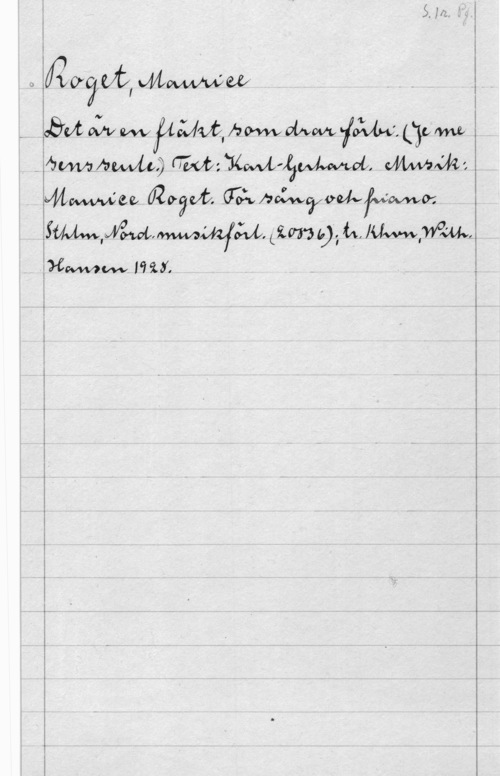 S. 1 r. Pg.
Roget, Maurice
Det är en fläkt, som drar förbi. (Je me
sens seule.) Text: Karl-Gerhard. Musik:
Maurice Roget. För sång och piano.
Sthlm, Nord. musikförl. (20536); tr. Khvn, Wilh.
Hansen 1928.